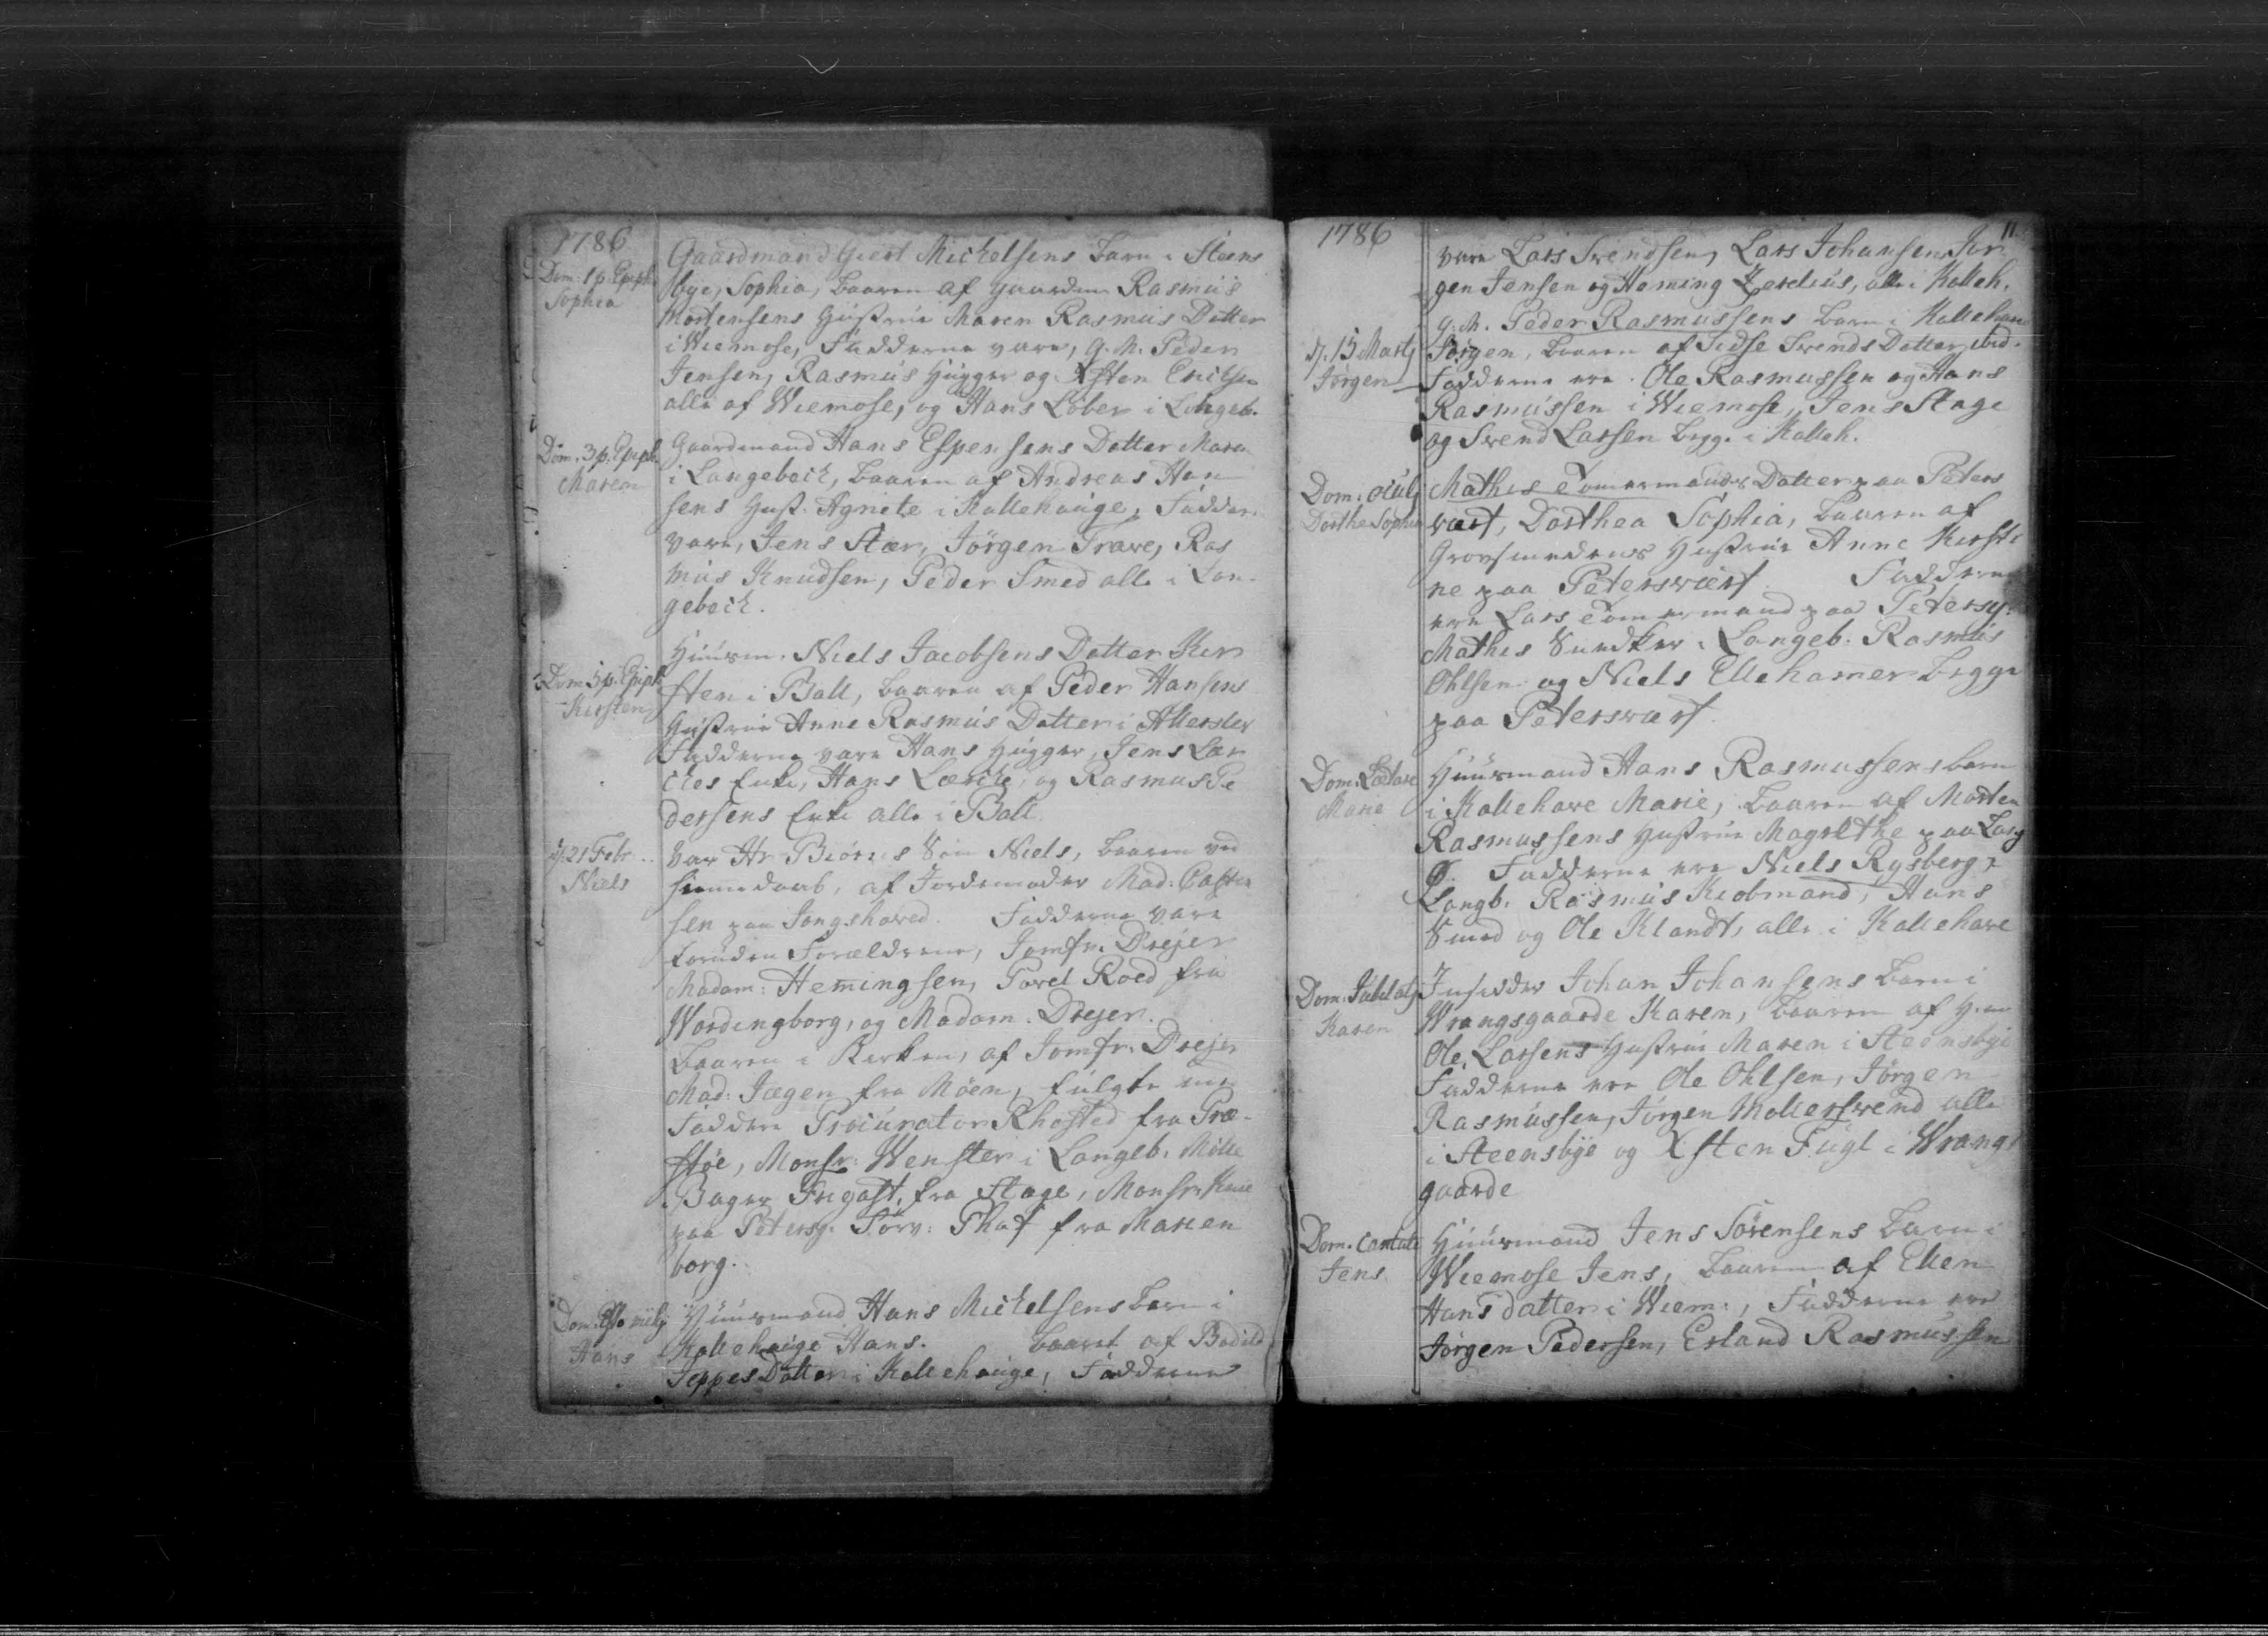 1786
Dom: 1 p. Epiph.
Sophia
Gaardmand Giert Michelsens barn i Steens
bye, Sophia, baaren af gaardm. Rasmus
Mortensens Hustrue Maren Rasmus Datter
i Wiemose, Fadderne vare, G. M. Peder
Jensen, Rasmus Hugger og Xsten Erichsen
alle af Wiemose, og Hans Løber i Langeb.
Dom. 3 p. Epiph.
Maren
Gaardmand Hans Espensens Datter Maren
i Langebech, baaren af Andreas Han
sens Hust. Agnete i Kallehauge, Fadder.
vare, Jens Stær, Jörgen Trave, Ras
mus Knudsen, Peder Smed alle i Lan-
gebech.
Dom 5 p. Epiph.
Kirsten
Huusm. Niels Jacobsens Datter Kir
sten i Balle, baaren af Peder Hansens
Hustrue Anne Rasmus Datter i Allerslev
Fadderne vare Hans Hugger, Jens Lær
ches Enke, Hans Lærche, og Rasmus Pe
dersens Enke alle i Balle.
d. 21 Febr.
Niels
var Hr Biörns Søn Niels, baaren ved
hiemmedaab, af Jordemoder Mad: Casten
sen paa Jungshoved. Fadderne vare
foruden Forældrene, Jomfr. Drejer
Madam: Hemingsen, Povel Roed fra
Wordingborg, og Madam. Drejer.
baaren i Kirken, af Jomfr. Drejer
Mad: Jægen fra Möen, fulgte med
Faddere Procurator Rhosted fra Præ-
støe, Monsr: Wenster i Langeb. Mölle
Bager Frigast, fra Stege, Monsr.
paa Petersg. Forv: Phaf fra Marien
borg.
Dom. Esto mihi
Hans
Huusmand Hans Michelsens barn i
Kallehauge Hans. baaret af Bodild
Jeppes Datter i Kallehauge, Fadderne
1786
11.
vare Lars Svendsen, Lars Johansen, Jör
gen Jensen og Heming Zerelius, alle i Kalleh.
d. 15 Martj
Jörgen
G. M. Peder Rasmussens barn i Kallehave
Jörgen, baaren af Sidse Svends Datter ibid.
Fadderne ere. Ole Rasmussen og Hans
Rasmussen i Wiemose, Jens Stage
og Svend Larsen begge i Kalleh.
Dom: oculj
Dorthe Sophia
Mathes Tömermands Datter paa Peters
værft, Dorthea Sophia, baaren af
Grovsmedens Hustrue Anne Kirsti
ne paa Petersværft. Fadderne
ere Lars Tömermand paa Petersv.
Mathes Snedker i Langeb. Rasmus
Ohlsen og Niels Ellehamer begge
paa Petersværft.
Dom. Lætare
Marie
Huusmand Hans Rasmussens barn
i Kallehave Marie, baaren af Morten
Rasmussens Hustrue Magrethe paa Lang
ö. Fadderne ere Niels Rysberg i
Langb. Rasmus Kiobmand, Hans
Smed og Ole Klandt, alle i Kallehave
Dom. Jubilatj
Karen
Insidder Johan Johansens barn i
Wrangsgaarde Karen, baaren af H.m
Ole Larsens Hustrue Maren i Steensbye
Fadderne ere Ole Ohlsen, Jörgen
Rasmussen, Jörgen Möllersvend alle
i Steensbye og Xsten Fugl i Wrangs
gaarde
Dom. Cantate
Jens
Huusmand Jens Sörensens barn i
Wiemose Jens, baaren af Ellen
Hans datter i Wiem:, Fadderne ere
Jörgen Pedersen, Erland Rasmussen